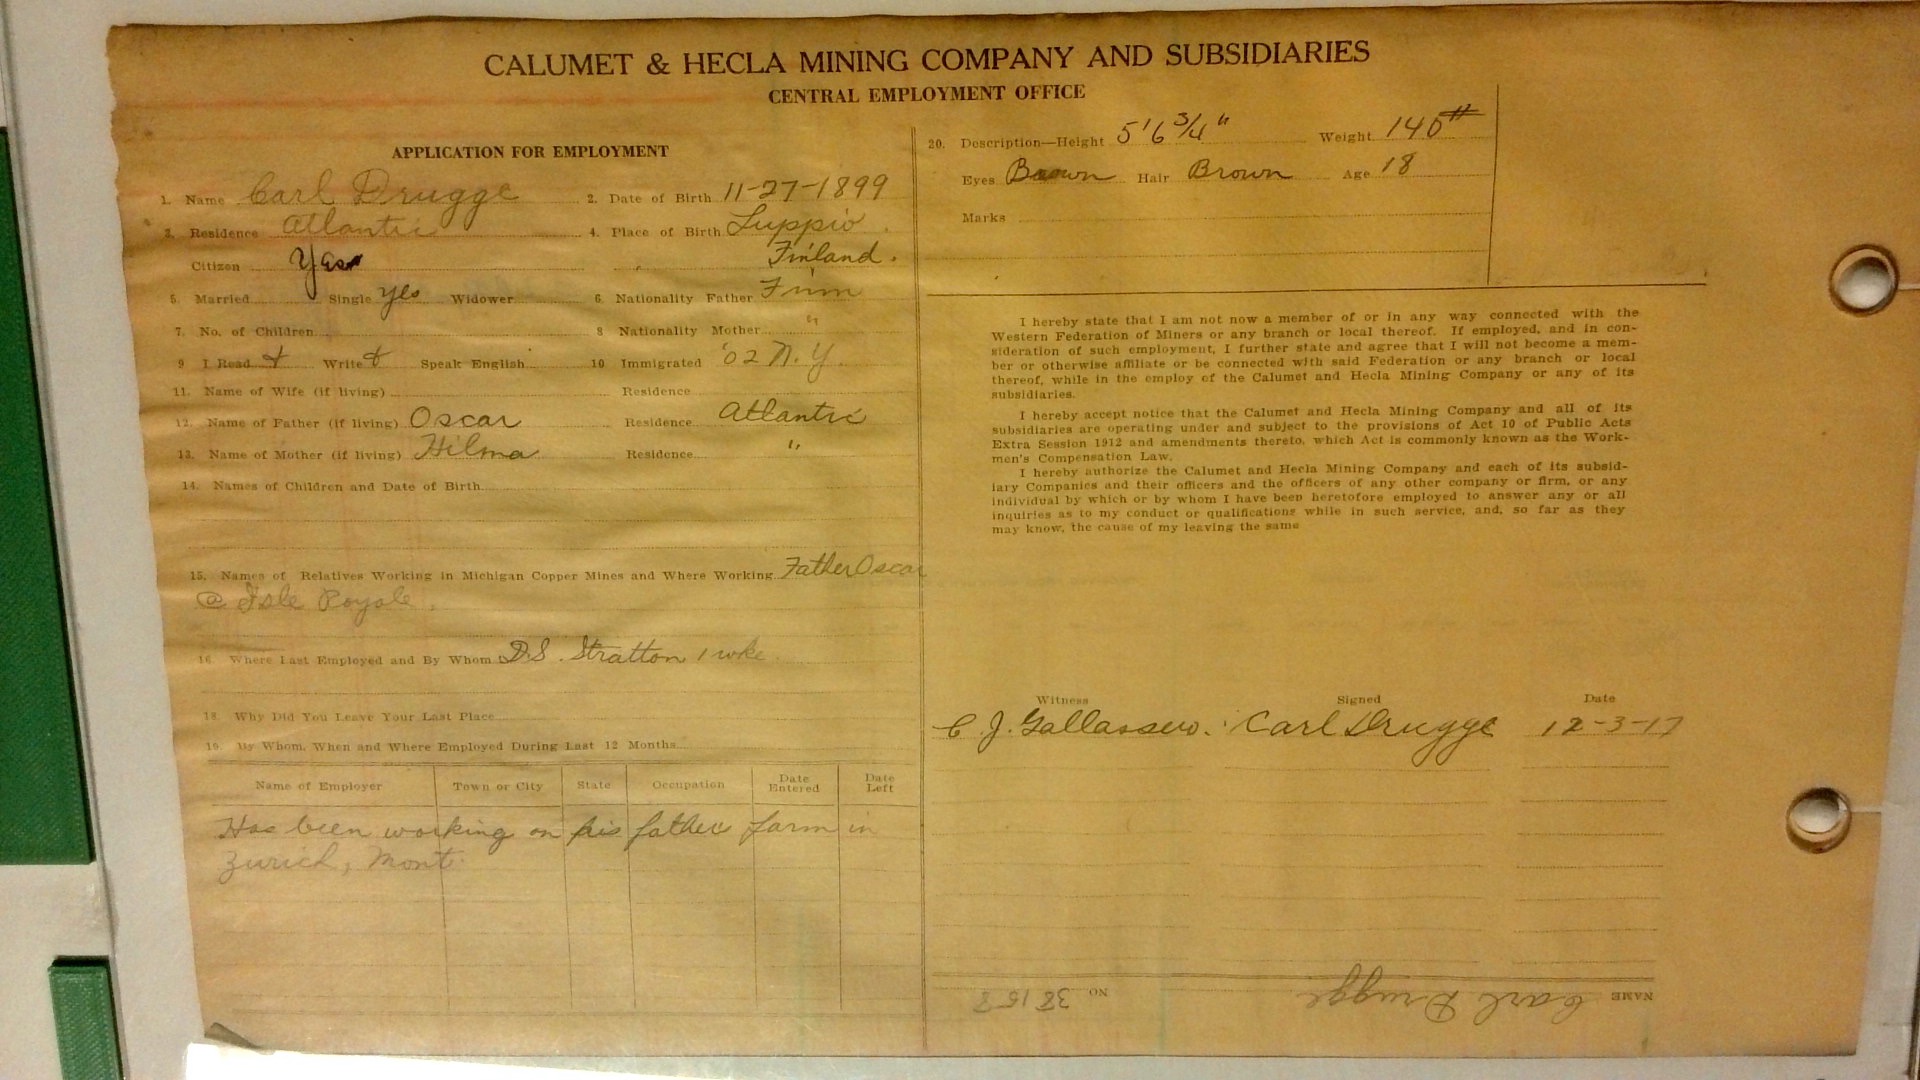 CALUMET & HECLA MINING COMPANY AND SUBSIDIARIES
CENTRAL EMPLOYMENT OFFICE
APPLICATION FOR EMPLOYMENT
1. Name Carl Drugge 2. Date of Birth 11-27-1899
3. Residence Atlantic 4. Place of Birth Luppio
Citizen Yes " Finland.
5. Married Single yes Widower 6. Nationality Father Finn
7. No. of Children 8 Nationality Mother "
9 I Read + Write + Speak English 10 Immigrated '02 N.Y.
11. Name of Wife (if living) Residence
12. Name of Father (if living) Oscar Residence Atlantic
13. Name of Mother (if living) Hilma Residence "
14. Names of Children and Date of Birth
15. Names of Relatives Working in Michigan Copper Mines and Where Working Father Oscar
@ Isle Royale.
16. Where Last Employed and By Whom D.S. Stratton 1 wke
18. Why Did You Leave Your Last Place
19. By Whom, When and Where Employed During Last 12 Months
Name of Employer Town or City State Occupation Date Entered Date Left
Has been working on his father farm in
Zurich, Mont.
20. Description—Height 5'6 3/4" Weight 140#
Eyes Brown Hair Brown Age 18
Marks
I hereby state that I am not now a member of or in any way connected with the
Western Federation of Miners or any branch or local thereof. If employed, and in con-
sideration of such employment, I further state and agree that I will not become a mem-
ber or otherwise affiliate or be connected with said Federation or any branch or local
thereof, while in the employ of the Calumet and Hecla Mining Company or any of its
subsidiaries.
I hereby accept notice that the Calumet and Hecla Mining Company and all of its
subsidiaries are operating under and subject to the provisions of Act 10 of Public Acts
Extra Session 1912 and amendments thereto, which Act is commonly known as the Work-
men's Compensation Law.
I hereby authorize the Calumet and Hecla Mining Company and each of its subsid-
iary Companies and their officers and the officers of any other company or firm, or any
individual by which or by whom I have been heretofore employed to answer any or all
inquiries as to my conduct or qualifications while in such service, and, so far as they
may know, the cause of my leaving the same
Witness Signed Date
C. J. Carl Drugge 12-3-17
NAME Carl Drugge NO 38158